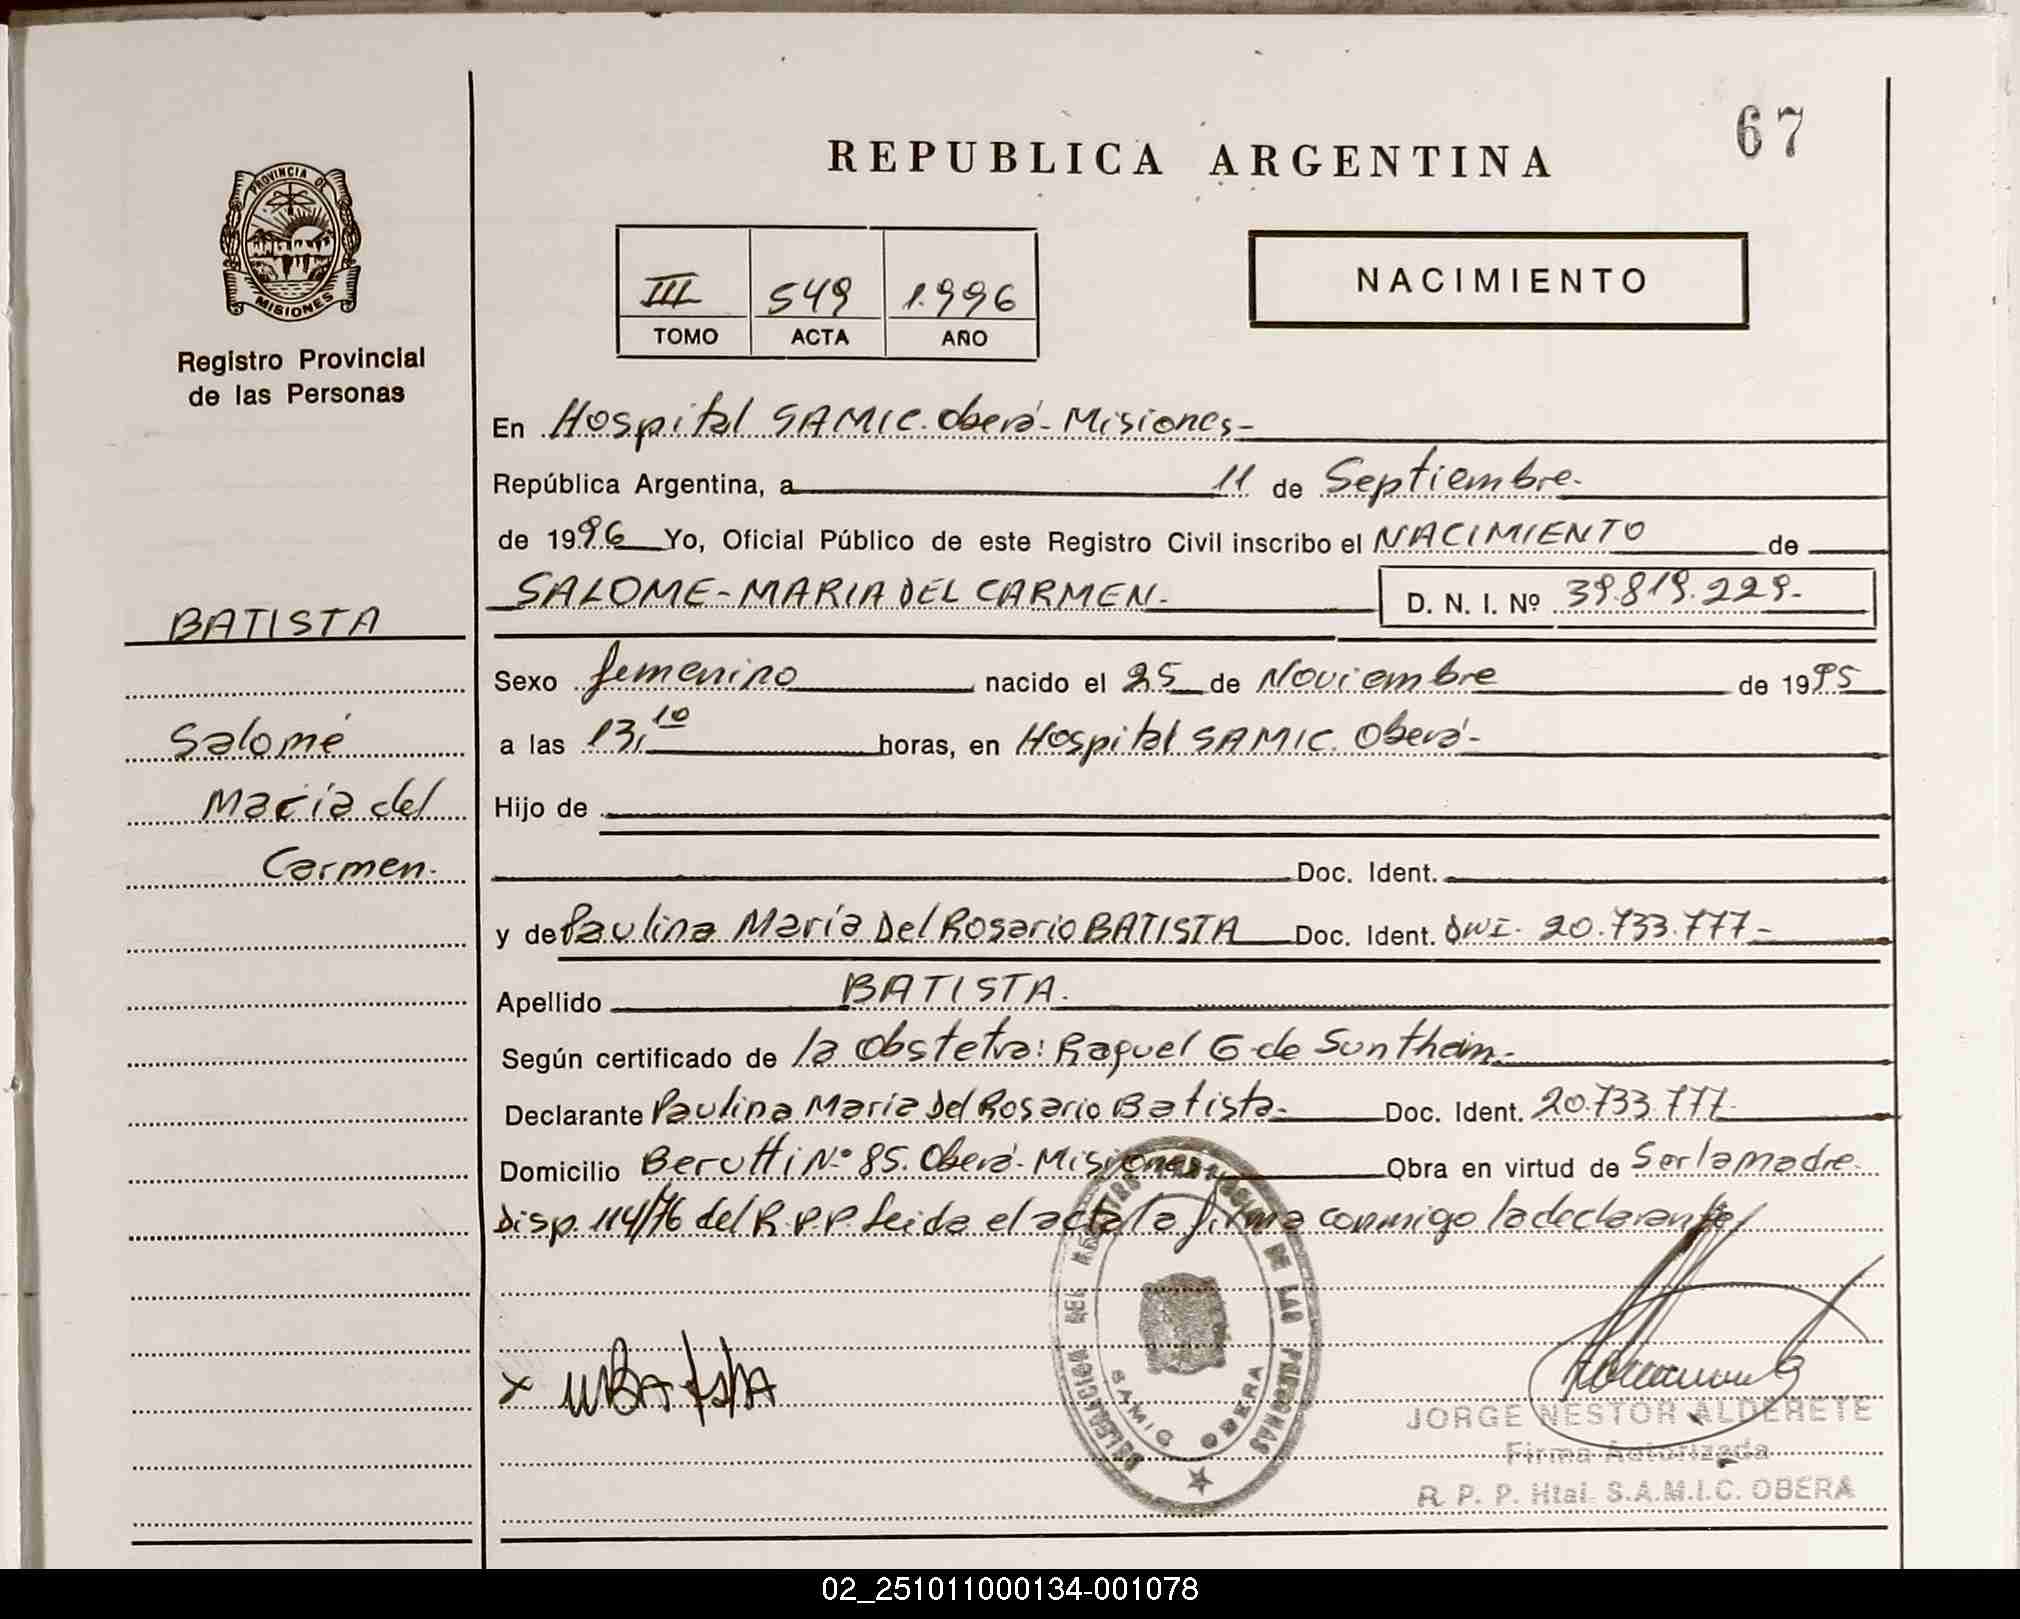 67
REPUBLICA ARGENTINA
PROVINCIA DE
MISIONES
Registro Provincial
de las Personas
NACIMIENTO
III 549 1.996
TOMO ACTA AÑO
En Hospital SAMIC. Oberá - Misiones -
República Argentina, a 11 de Septiembre.
de 1996 Yo, Oficial Público de este Registro Civil inscribo el NACIMIENTO de
SALOME - MARIA DEL CARMEN. D. N. I. Nº 39.819.229.-
BATISTA
Salomé
María del
Carmen.
Sexo femenino nacido el 25 de Noviembre de 1995
a las 13,10 horas, en Hospital SAMIC. Oberá -
Hijo de
Doc. Ident.
y de Paulina María Del Rosario BATISTA Doc. Ident. DNI. 20.733.777 -
Apellido BATISTA.
Según certificado de la obstetra: Raquel G de Sunthein.-
Declarante Paulina María Del Rosario Batista - Doc. Ident. 20.733.777.
Domicilio Berutti N.º 85. Oberá - Misiones Obra en virtud de Ser la madre.
Disp. 114/76 del R.P.P. Leida el acta la firma conmigo la declarante
DELEGACION DEL REGISTRO PROVINCIAL DE LAS PERSONAS
SAMIC OBERA
x MBAtistA
JORGE NESTOR ALDERETE
Firma Autorizada
R. P. P. Htal. S.A.M.I.C. OBERA
02_251011000134-001078